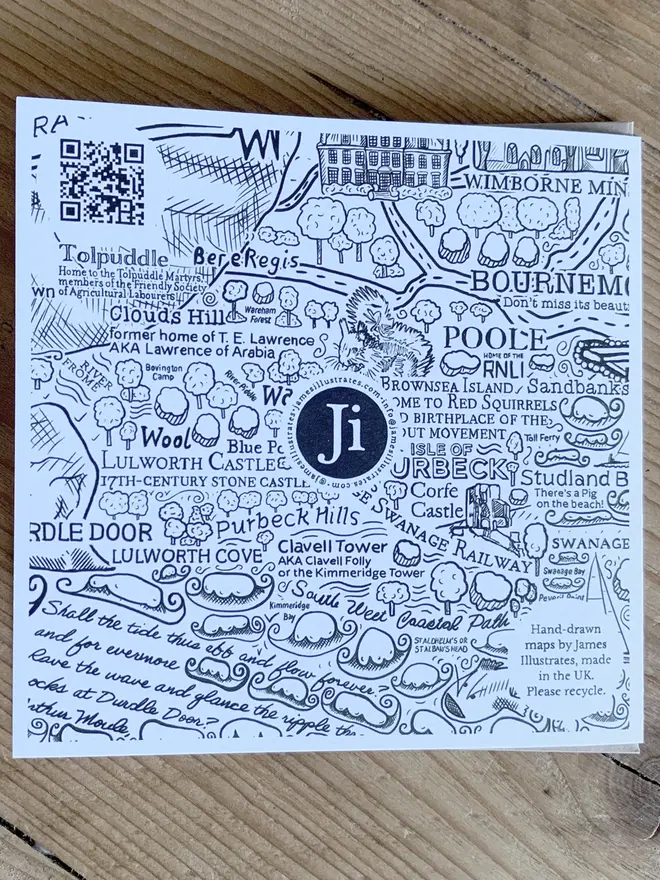 RA
WIMBORNE MIN
Tolpuddle
Home to the Tolpuddle Martyrs,
members of the Friendly Society
of Agricultural Labourers
wn
Bere Regis
BOURNEMO
Don't miss its beaut
Clouds Hill
former home of T. E. Lawrence
AKA Lawrence of Arabia
Wareham
Forest
POOLE
HOME OF THE
RNLI
BROWNSEA ISLAND
Sandbanks
OME TO RED SQUIRRELS
D BIRTHPLACE OF THE
OUT MOVEMENT
RIVER
FROME
Bovington
Camp
River Piddle
Wa
Wool
Blue Po
Toll Ferry
LULWORTH CASTLE
17TH-CENTURY STONE CASTLE
ISLE OF
URBECK
Studland B
There's a Pig
on the beach!
Corfe
Castle
SWANAGE RAILWAY
Ji
jamesillustrates.com
info@jamesillustrates.com
@jamesillustrates
RDLE DOOR
Purbeck Hills
LULWORTH COVE
Clavell Tower
AKA Clavell Folly
or the Kimmeridge Tower
SWANAGE
Swanage Bay
Peveril Point
South West Coastal Path
Kimmeridge
Bay
ST ALDHELM'S OR
ST ALBAN'S HEAD
Shall the tide thus ebb and flow forever?
and for evermore
lave the wave and glance the ripple thr
ocks at Durdle Door?
rthur Moule
Hand-drawn
maps by James
Illustrates, made
in the UK.
Please recycle.